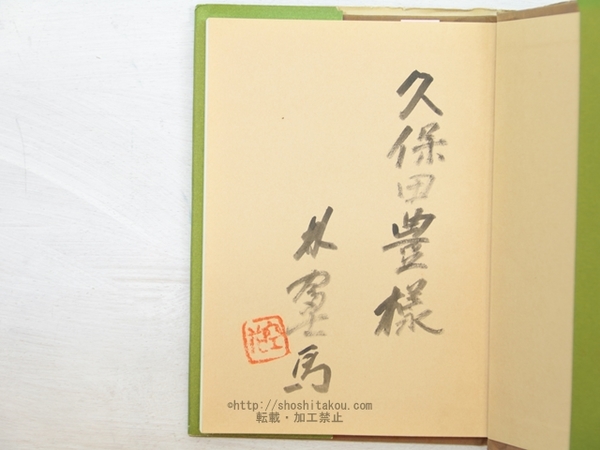 久保田豊様
林富士馬
©http://shoshitakou.com/
転載・加工禁止